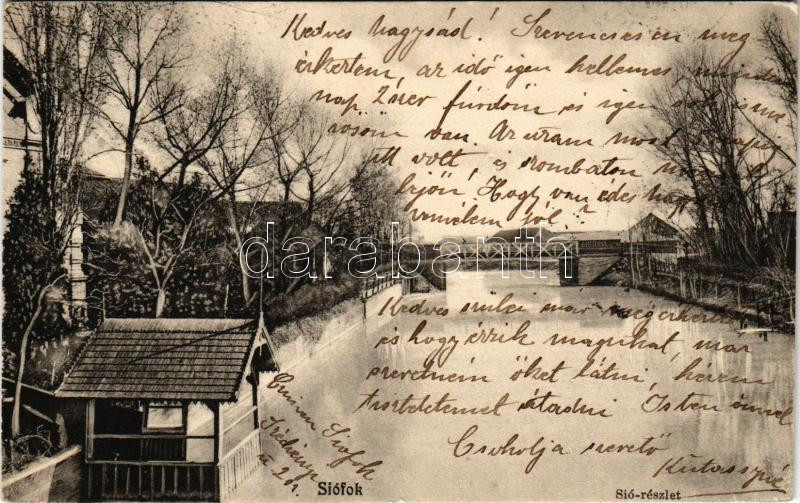 Kedves nagysád! Szerencsésen meg
érkeztem, az idő igen kellemes, minden
nap 2szer fürdöm és igen sok isme
rősöm van. Az uram most
itt volt és szombaton
lejön! Hogy van édes nagy
remélem jól?
Kedves
és hogy érzik magukat, már
szeretném őket látni, kérem
tiszteletemet átadni Isten önnel
Csókolja szerető
Siófok
darabanth.com
Siófok
Sió-részlet